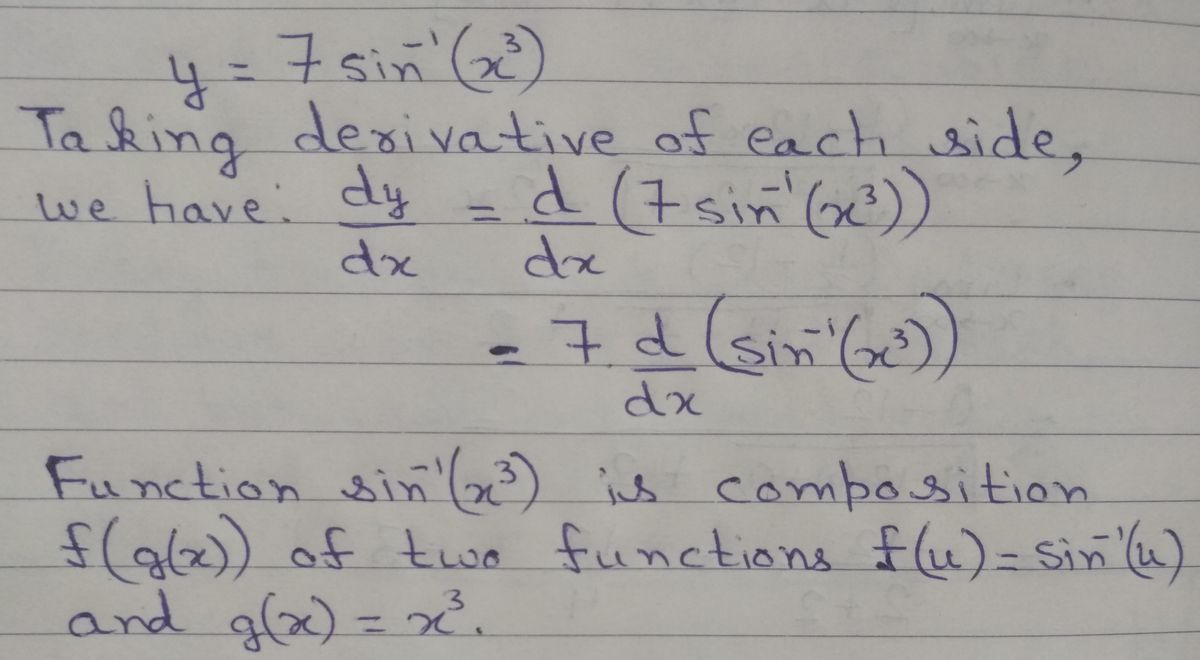 y = 7 sin⁻¹(x³)
Taking derivative of each side,
we have. dy/dx = d/dx (7 sin⁻¹(x³))
= 7. d/dx (sin⁻¹(x³))
Function sin⁻¹(x³) is composition
f(g(x)) of two functions f(u) = sin⁻¹(u)
and g(x) = x³.